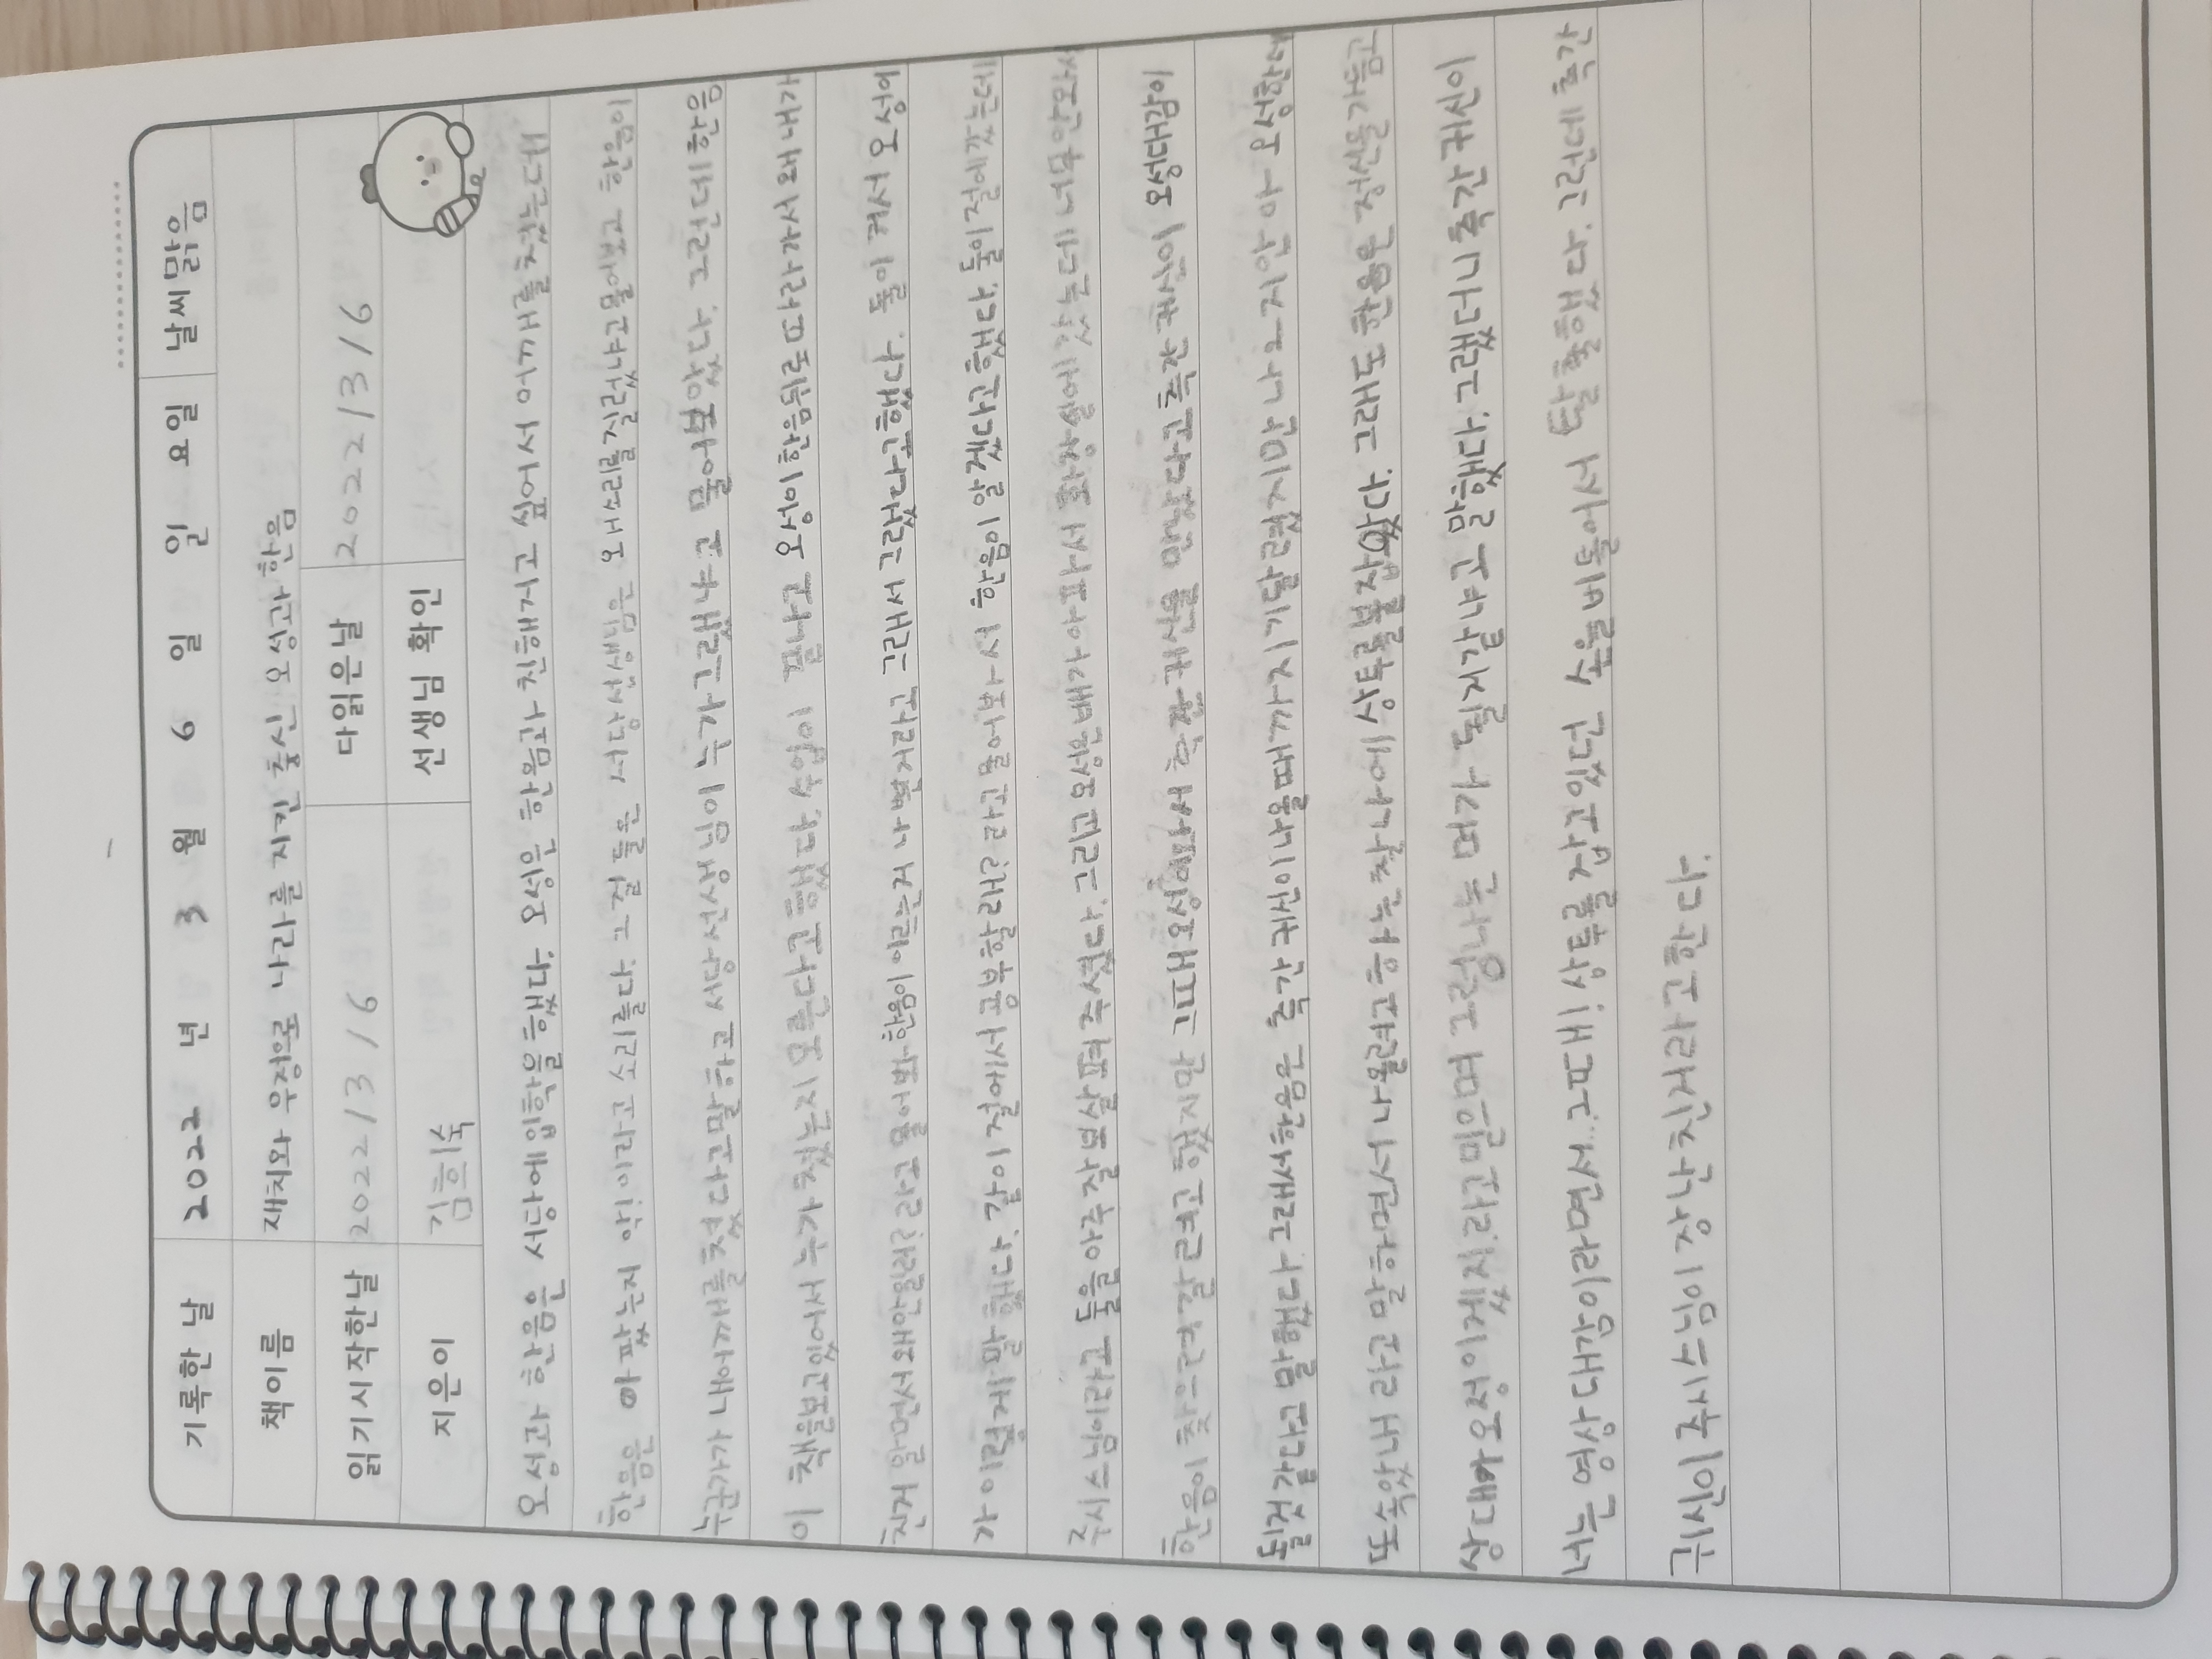 기록한 날 2022 년 3 월 6 일 일 요일 날씨 맑음
책이름 재치와 우정으로 나라를 지킨 충신 오성과 한음
읽기시작한날 2022/3/6 다읽은날 2022/3/6
지은이 김희숙 선생님 확인
오성과 한음은 서당에입학을했다. 오성은 한음과 친해지고 싶어서 어깨를 쳤는데
한음은 아팠는지 악!이라고 소리를다. 그걸 들은 서당선생님은 왜소리를질렀냐고물어보고 한음이
누군가가 내어깨를 쳤다고말하고 서당선생님이 누가그랬냐고 물어보았다. 그런데한음
이 책을보고있어서 누가 쳤는지 모른다고했다. 수업이 끝나고 오성이한음뒤로따라가서 왜내가
친거 알면서왜안일러? 라고 물어봐 한음이 이르는거 나쁜거라고 그래서 그랬다고했다. 둘이 커서 오성이
가 이렇게 말했다. 같이 절에서 공부할래? 라고물어봐서 한음이 알겠다고했다. 둘이절에갔는데
주시스님이라고 둘을아주잘보살펴주셨다. 그리고오성은배가아파서 화장실에갔는데 너무안와서
한음이 찾으려갈려고했지만 그때오성이와서 측간귀신을 만났다고측간귀신이 오성대감이
될것같다고 말했다. 그래서한음은 측간귀신이나올때까지기달렸지만 나오지안아 오성한테
또속았내 라고말하면서 나올려고하는찰나에 상투를붙잡았다. 그래도 한음은 정신을가듬고
상대가오성이겠지.라고믿으며 그럼나는 머가 될거같냐고 말했다. 그랬더니측간귀신이
너는 영상대감이라면서...그때! 상투를잡고있던 손을비틀어서 탈출했다. 그런데측간
귀신이주시스님이장난친거라고한다.